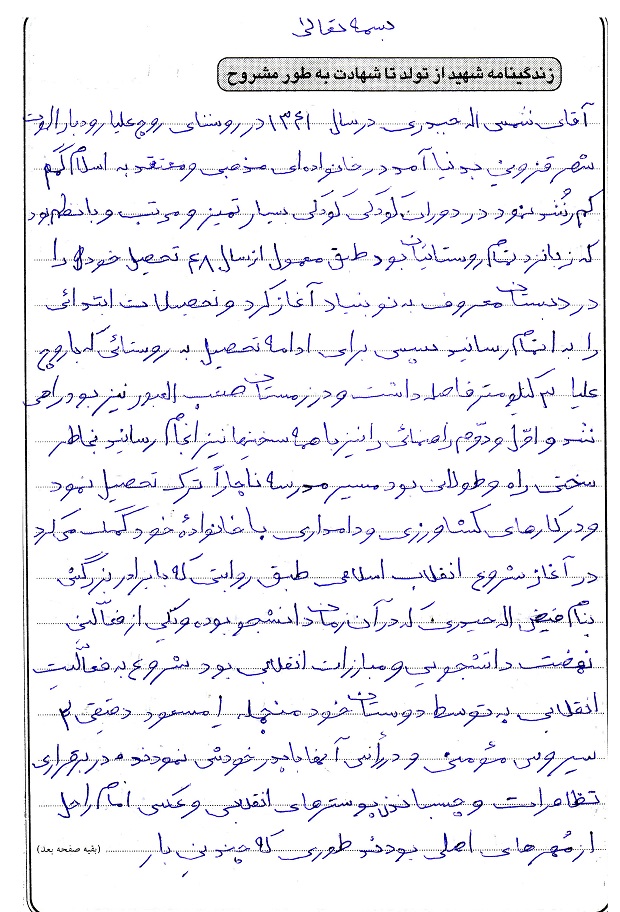 بسمه تعالی
زندگینامه شهید از تولد تا شهادت به طور مشروح
آقای شمس اله حیدری در سال ۱۳۴۱ در روستای روچ علیا رودبار الموت
شهر قزوین بدنیا آمد در خانواده‌ای مذهبی و معتقد به اسلام کم
کم رشد نمود در دوران کودکی کودکی بسیار تمیز و مرتب و با نظم بود
که زبانزد تمام روستائیان بود طبق معمول از سال ۴۸ تحصیل خود را
در دبستان معروف به نوبنیاد آغاز کرد و تحصیلات ابتدائی
را به اتمام رسانید سپس برای ادامه تحصیل به روستائی که با روچ
علیا کیلومتر فاصله داشت و در زمستان صعب العبور نیز بود راهی
شد و اول و دوم راهنمائی را نیز با همه سختیها نیز انجام رسانید بخاطر
سختی راه و طولانی بود مسیر مدرسه ناچاراً ترک تحصیل نمود
و در کارهای کشاورزی و دامداری با خانواده خود کمک می‌کرد
در آغاز شروع انقلاب اسلامی طبق روایتی که با برادر بزرگش
بنام فیض اله حیدری که در آن زمان دانشجو بوده و یکی از فعالین
نهضت دانشجویی و مبارزات انقلابی بود شروع به فعالیت
انقلابی به توسط دوستان خود منجمله ۱ مسعود حقیقی ۲
سیروس مؤمنی و در رأس آنها با پدر خودش نمودند در برقراری
تظاهرات و چسباندن پوسترهای انقلابی و عکس امام راحل
از مهره‌های اصلی بودند طوری که چندین بار
(بقیه صفحه بعد)